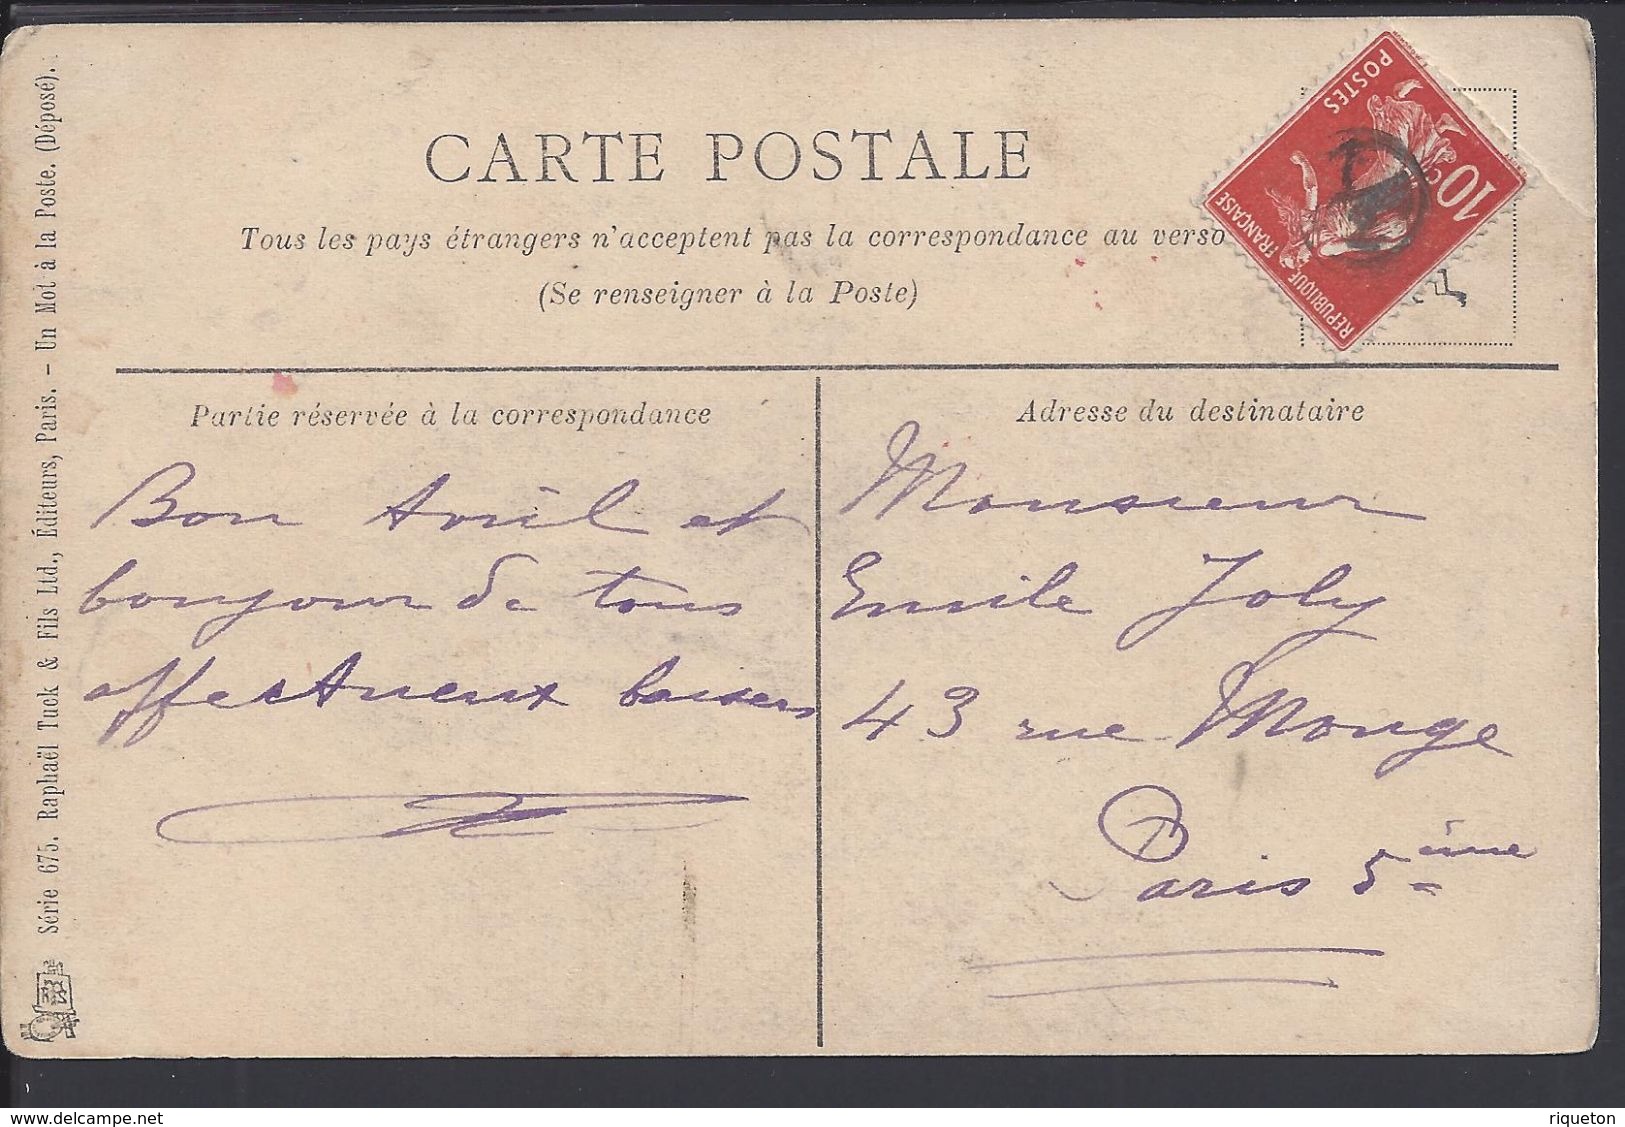 CARTE POSTALE
Tous les pays étrangers n'acceptent pas la correspondance au verso
(Se renseigner à la Poste)
POSTES
10 c
REPUBLIQUE FRANÇAISE
Série 675. Raphaël Tuck & Fils Ltd., Éditeurs, Paris. - Un Mot à la Poste. (Déposé).
Partie réservée à la correspondance
Bon Avril et
bonjour de tous
affectueux baisers
Adresse du destinataire
Monsieur
Emile Joly
43 rue Monge
Paris 5ème
delcampe.net
riqueton